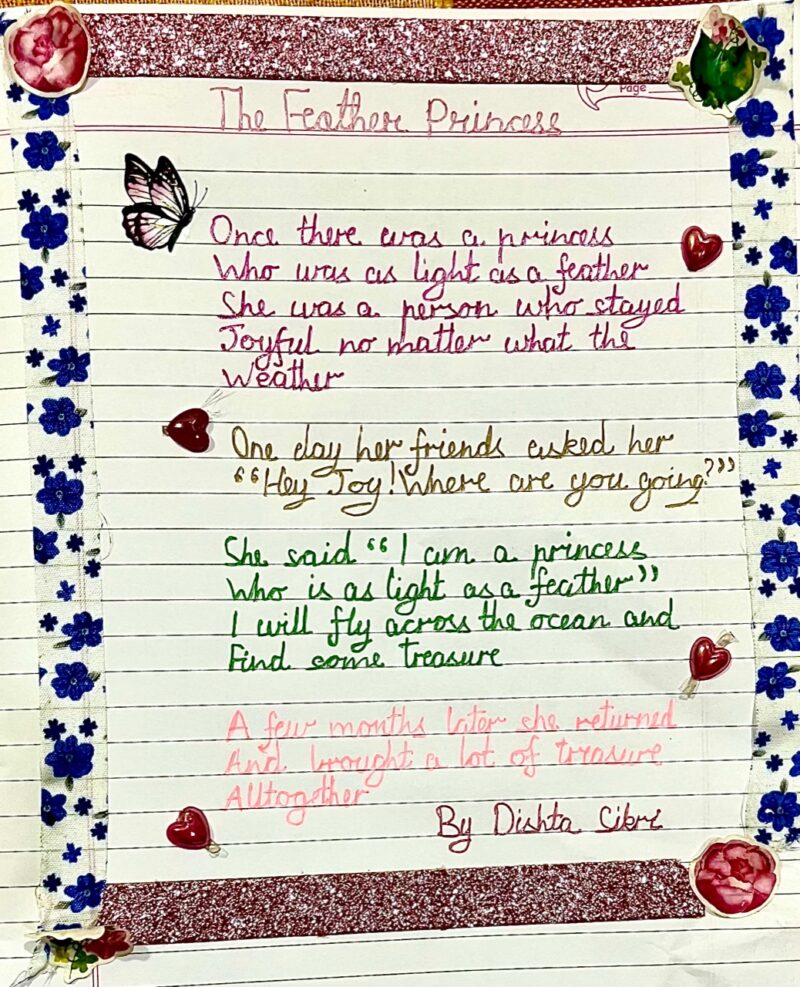 Page
The Feather Princess
Once there was a princess
Who was as light as a feather
She was a person who stayed
Joyful no matter what the
Weather
One day her friends asked her
“Hey Joy! Where are you going?”
She said “I am a princess
Who is as light as a feather”
I will fly across the ocean and
Find some treasure
A few months later she returned
And brought a lot of treasure
Alltogether
By Dishta Sibri